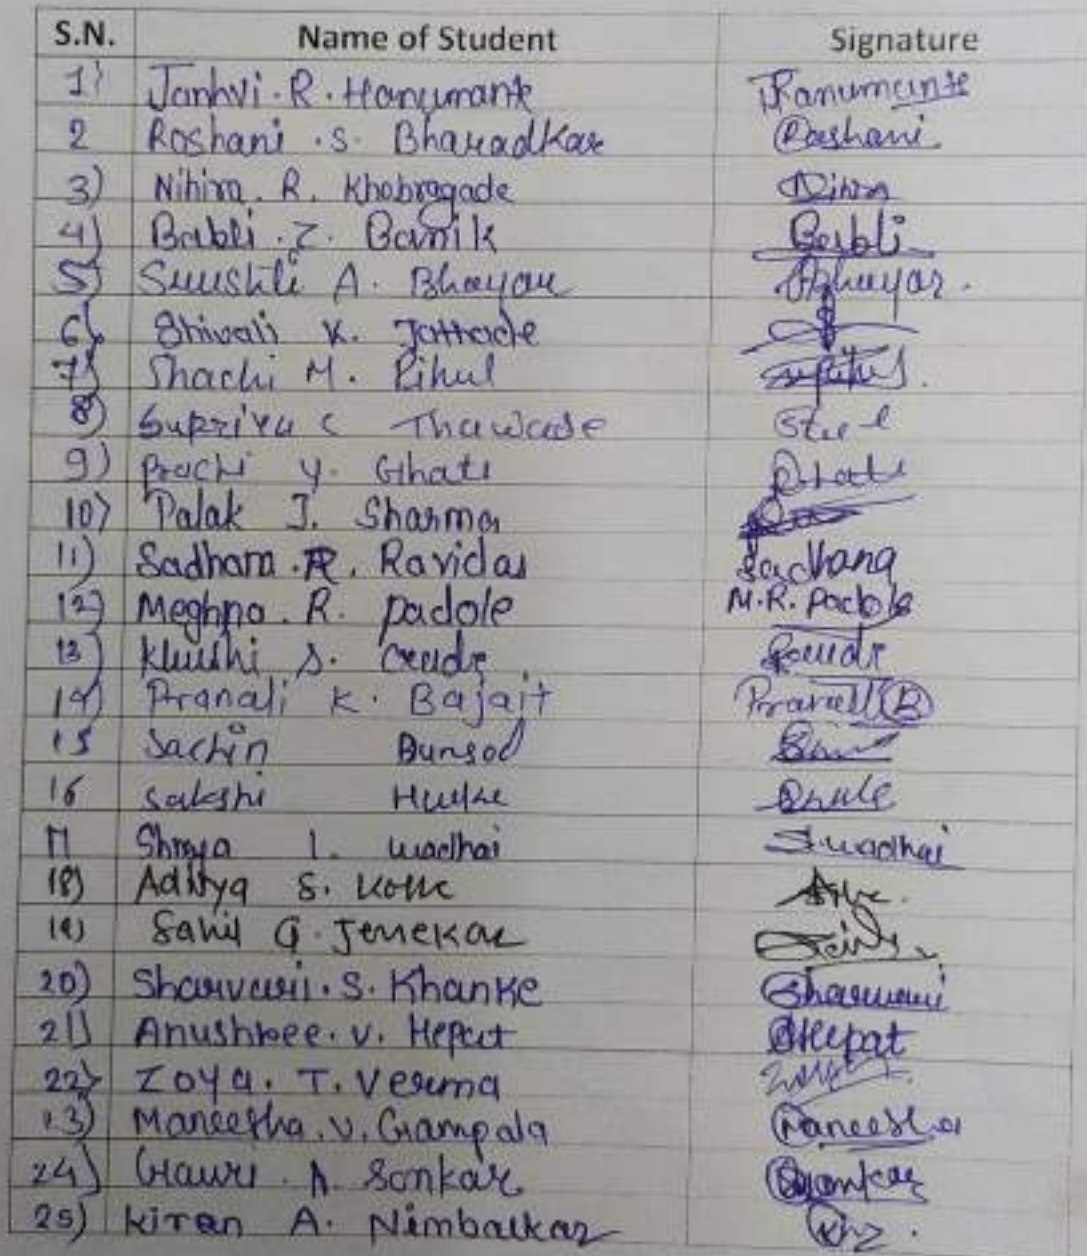 S.N. Name of Student Signature
1) Janhvi. R. Hanumante
2 Roshani .S. Bharadkar Roshani
3) Nihira. R. Khobragade Nihira
4) Babli. Z. Banik Babli
5) A. Bhoyar Abhuyar.
6) Shivali K.
7) Shachi M. Pihul
8) Supriya C Thawade
9) Prachi Y. Ghati
10) Palak J. Sharma
11) Sadhana .R. Ravidas Sadhana
12) Meghna. R. padole M.R. Padole
13) Khushi S.
14) Pranali K. Bajait
15 Sachin Bunsod
16 Sakshi
17 Shreya l. wadhai S.wadhai
18) Aditya S.
19) Sahil G. Jenekar
20) Sharvari. S. Khanke Sharvari
21) Anushree. V. Hepat AHepat
22) Zoya. T. Verma
13) Maneesha. V. Gampala Maneesha
24) Gauri. A Sonkar Sonkar
25) Kiran A. Nimbalkar